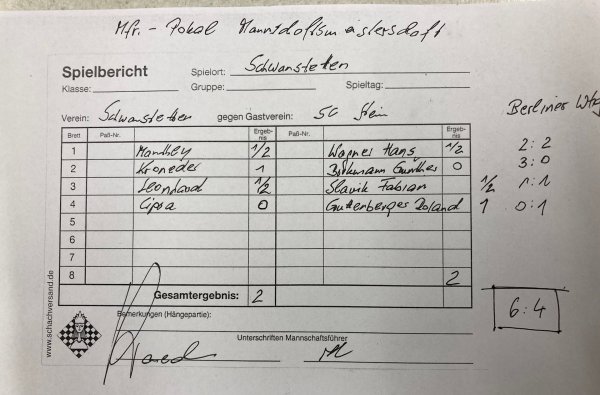 Mfr. - Pokal Mannschaftsmeisterschaft
Spielbericht Spielort: Schwanstetten
Klasse: Gruppe: Spieltag:
Verein: Schwanstetten gegen Gastverein: SC Stein
Berliner
Brett Paß-Nr. Ergeb-nis Paß-Nr. Ergeb-nis
1 1/2 Wagner Hans 1/2 2:2
2 Kroneder 1 Günther 0 3:0
3 Leonhard 1/2 Slavik Fabian 1/2 1:1
4 Cipra 0 Guttenberger Roland 1 0:1
5
6
7
8 2
Gesamtergebnis: 2
6:4
Bemerkungen (Hängepartie):
Unterschriften Mannschaftsführer
www.schachversand.de